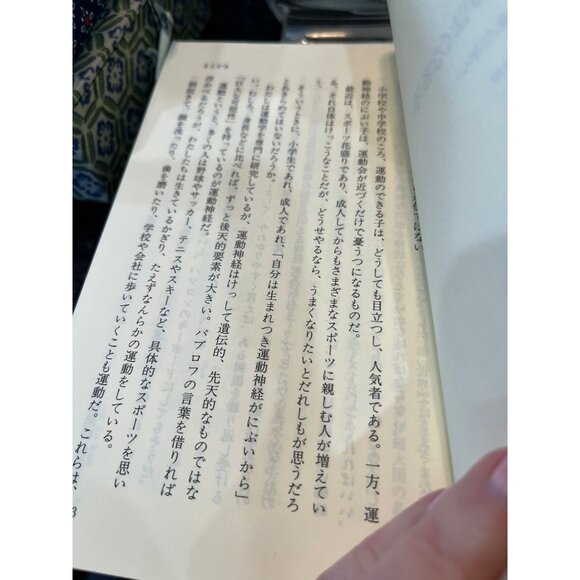 まえがき
小学校や中学校のころ、運動のできる子は、どうしても目立つし、人気者である。一方、運
動神経のにぶい子は、運動会が近づくだけで憂うつになるものだ。
最近は、スポーツ花盛りであり、成人してからもさまざまなスポーツに親しむ人が増えてい
る。それ自体はけっこうなことだが、どうせやるなら、うまくなりたいとだれしもが思うだろ
う。
そういうときに、小学生であれ、成人であれ、「自分は生まれつき運動神経がにぶいから」
とあきらめてはいないだろうか。
わたしは運動学を専門に研究しているが、運動神経はけっして遺伝的、先天的なものではな
い。むしろ、身長などに比べれば、ずっと後天的要素が大きい。パブロフの言葉を借りれば
「巨大な可能性」を持っているのが運動神経だ。
運動というと、多くの人は野球やサッカー、テニスやスキーなど、具体的なスポーツを思い
浮かべるだろうが、わたしたちは生きているかぎり、たえずなんらかの運動をしている。
朝起きて、顔を洗ったり、歯を磨いたり、学校や会社に歩いていくことも運動だ。これらは、
3